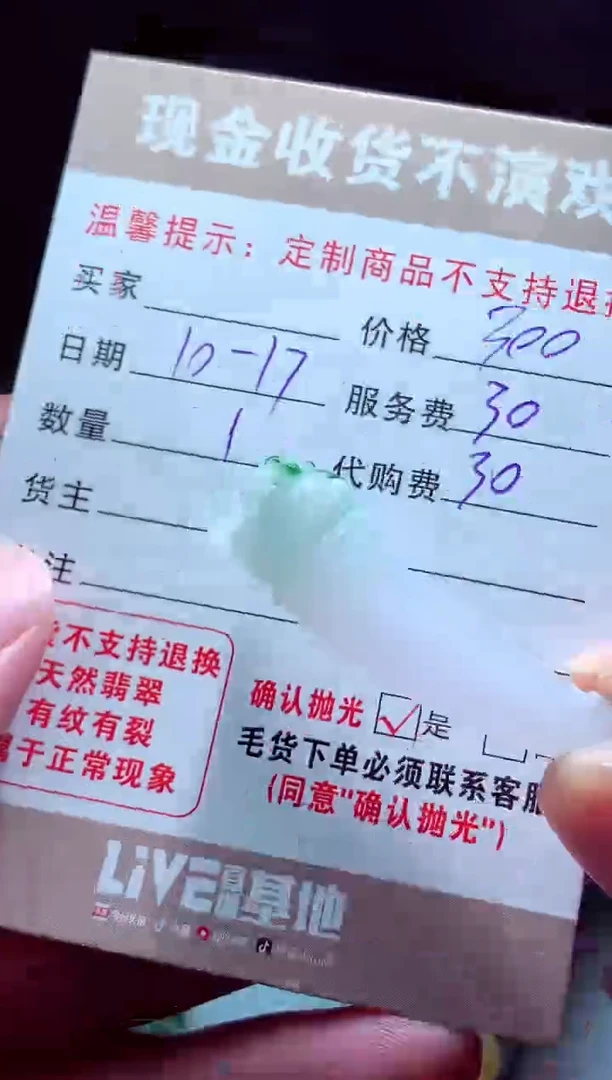 现金收货不演戏
温馨提示：定制商品不支持退
买家
价格 300
日期 10-17
服务费 30
数量 1
代购费 30
货主
注
不支持退换
天然翡翠
有纹有裂
属于正常现象
确认抛光 是
毛货下单必须联系客服
(同意"确认抛光")
LIVE 基地